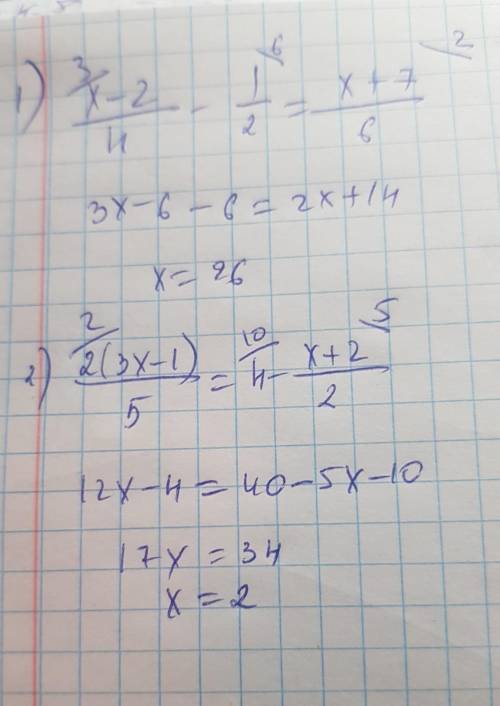 1) 3/ (x-2)/4 - 1/2 /6 = (x+7)/6 /2
3x-6-6=2x+14
x=26
2) 2/ 2(3x-1)/5 = 10/ 4 - (x+2)/2 /5
12x-4=40-5x-10
17x=34
x=2